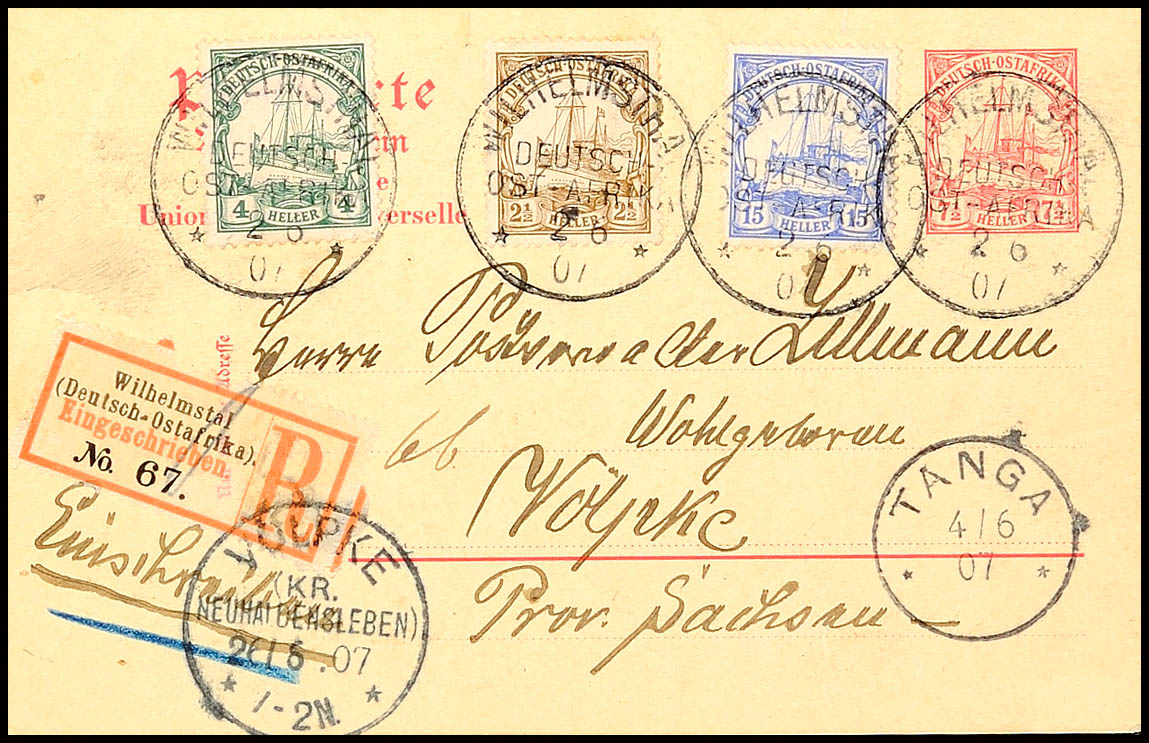 DEUTSCH-OSTAFRIKA
4 HELLER 4
DEUTSCH-OSTAFRIKA
2½ HELLER 2½
DEUTSCH-OSTAFRIKA
15 HELLER 15
DEUTSCH-OSTAFRIKA
7½ HELLER 7½
WILHELMSTAL
DEUTSCH-
OST-AFRIKA
2 6
07
WILHELMSTAL
DEUTSCH-
OST-AFRIKA
2 6
07
WILHELMSTAL
DEUTSCH-
OST-AFRIKA
2 6
07
WILHELMSTAL
DEUTSCH-
OST-AFRIKA
2 6
07
Union erselle
Herrn Lellmann
Wohlgeboren
Völpke
Prov. Sachsen
Wilhelmstal
(Deutsch-Ostafrika).
Eingeschrieben
No. 67.
R
Einschreiben
VÖLPKE
(KR.
NEUHALDENSLEBEN)
07
1-2N.
TANGA
4/6
07